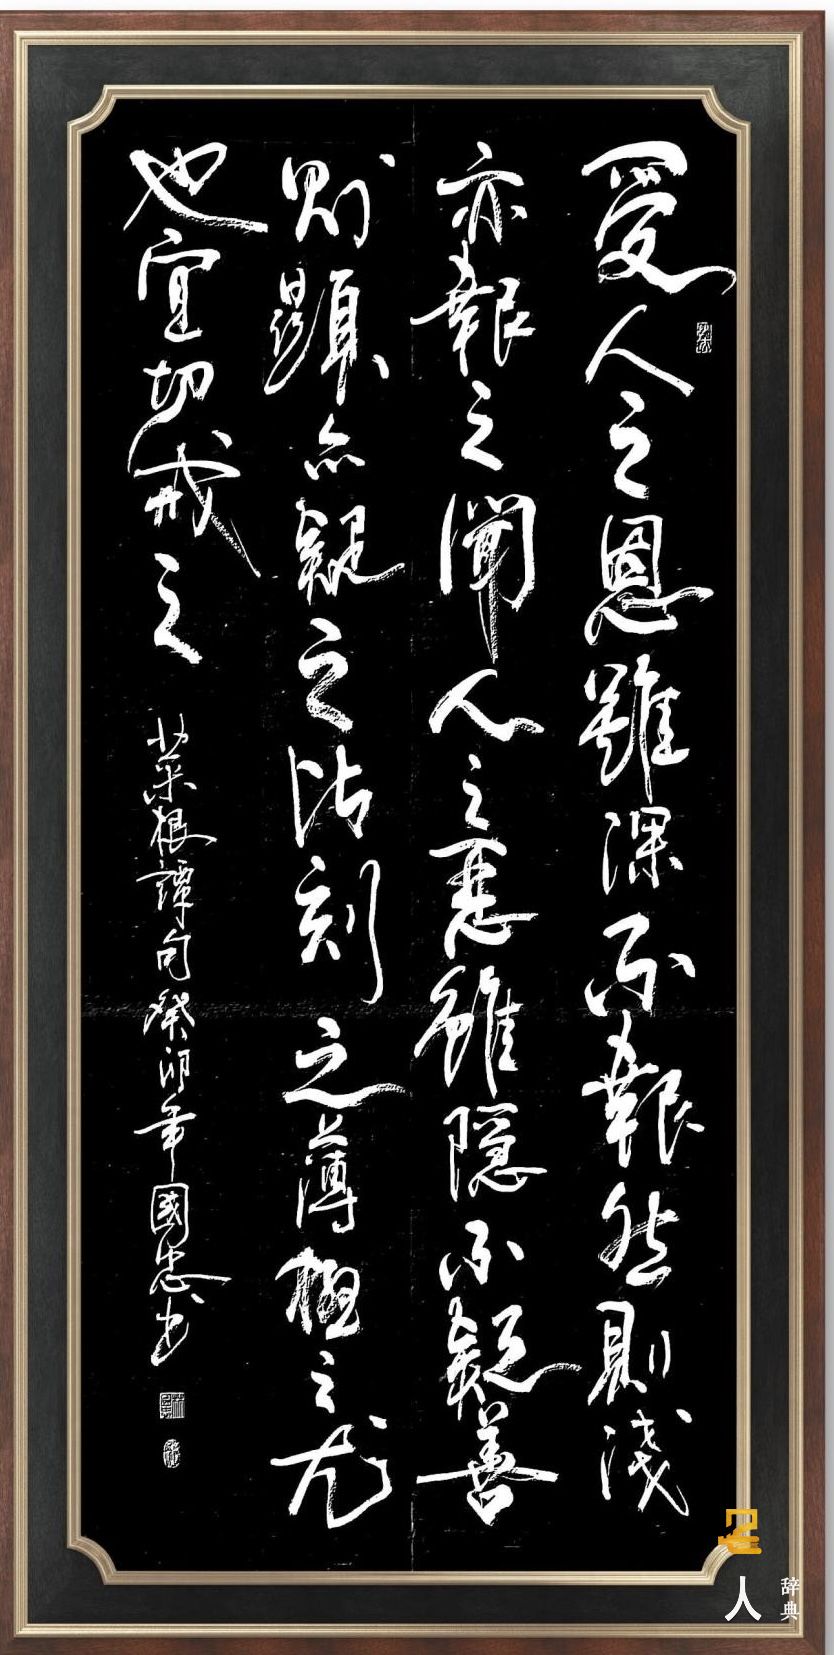 受人之恩雖深不報怨則淺
亦報之聞人之惡雖隱不疑善
則顯亦疑之此刻之薄極之尤
也宜切戒之 菜根譚句癸卯年國忠书
人
辞典